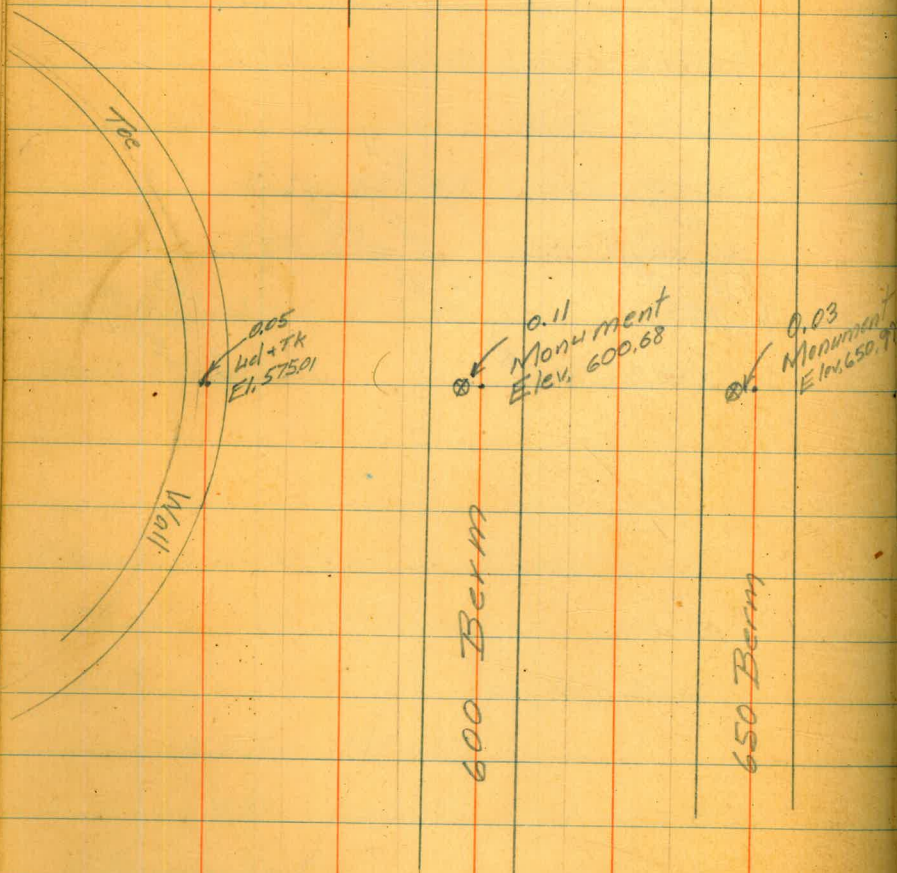 Toe
Wall
0.05
Ld + Tk
El. 575.01
0.11
Monument
Elev. 600.68
0.03
Monument
Elev. 650.9
600 Berm
650 Berm